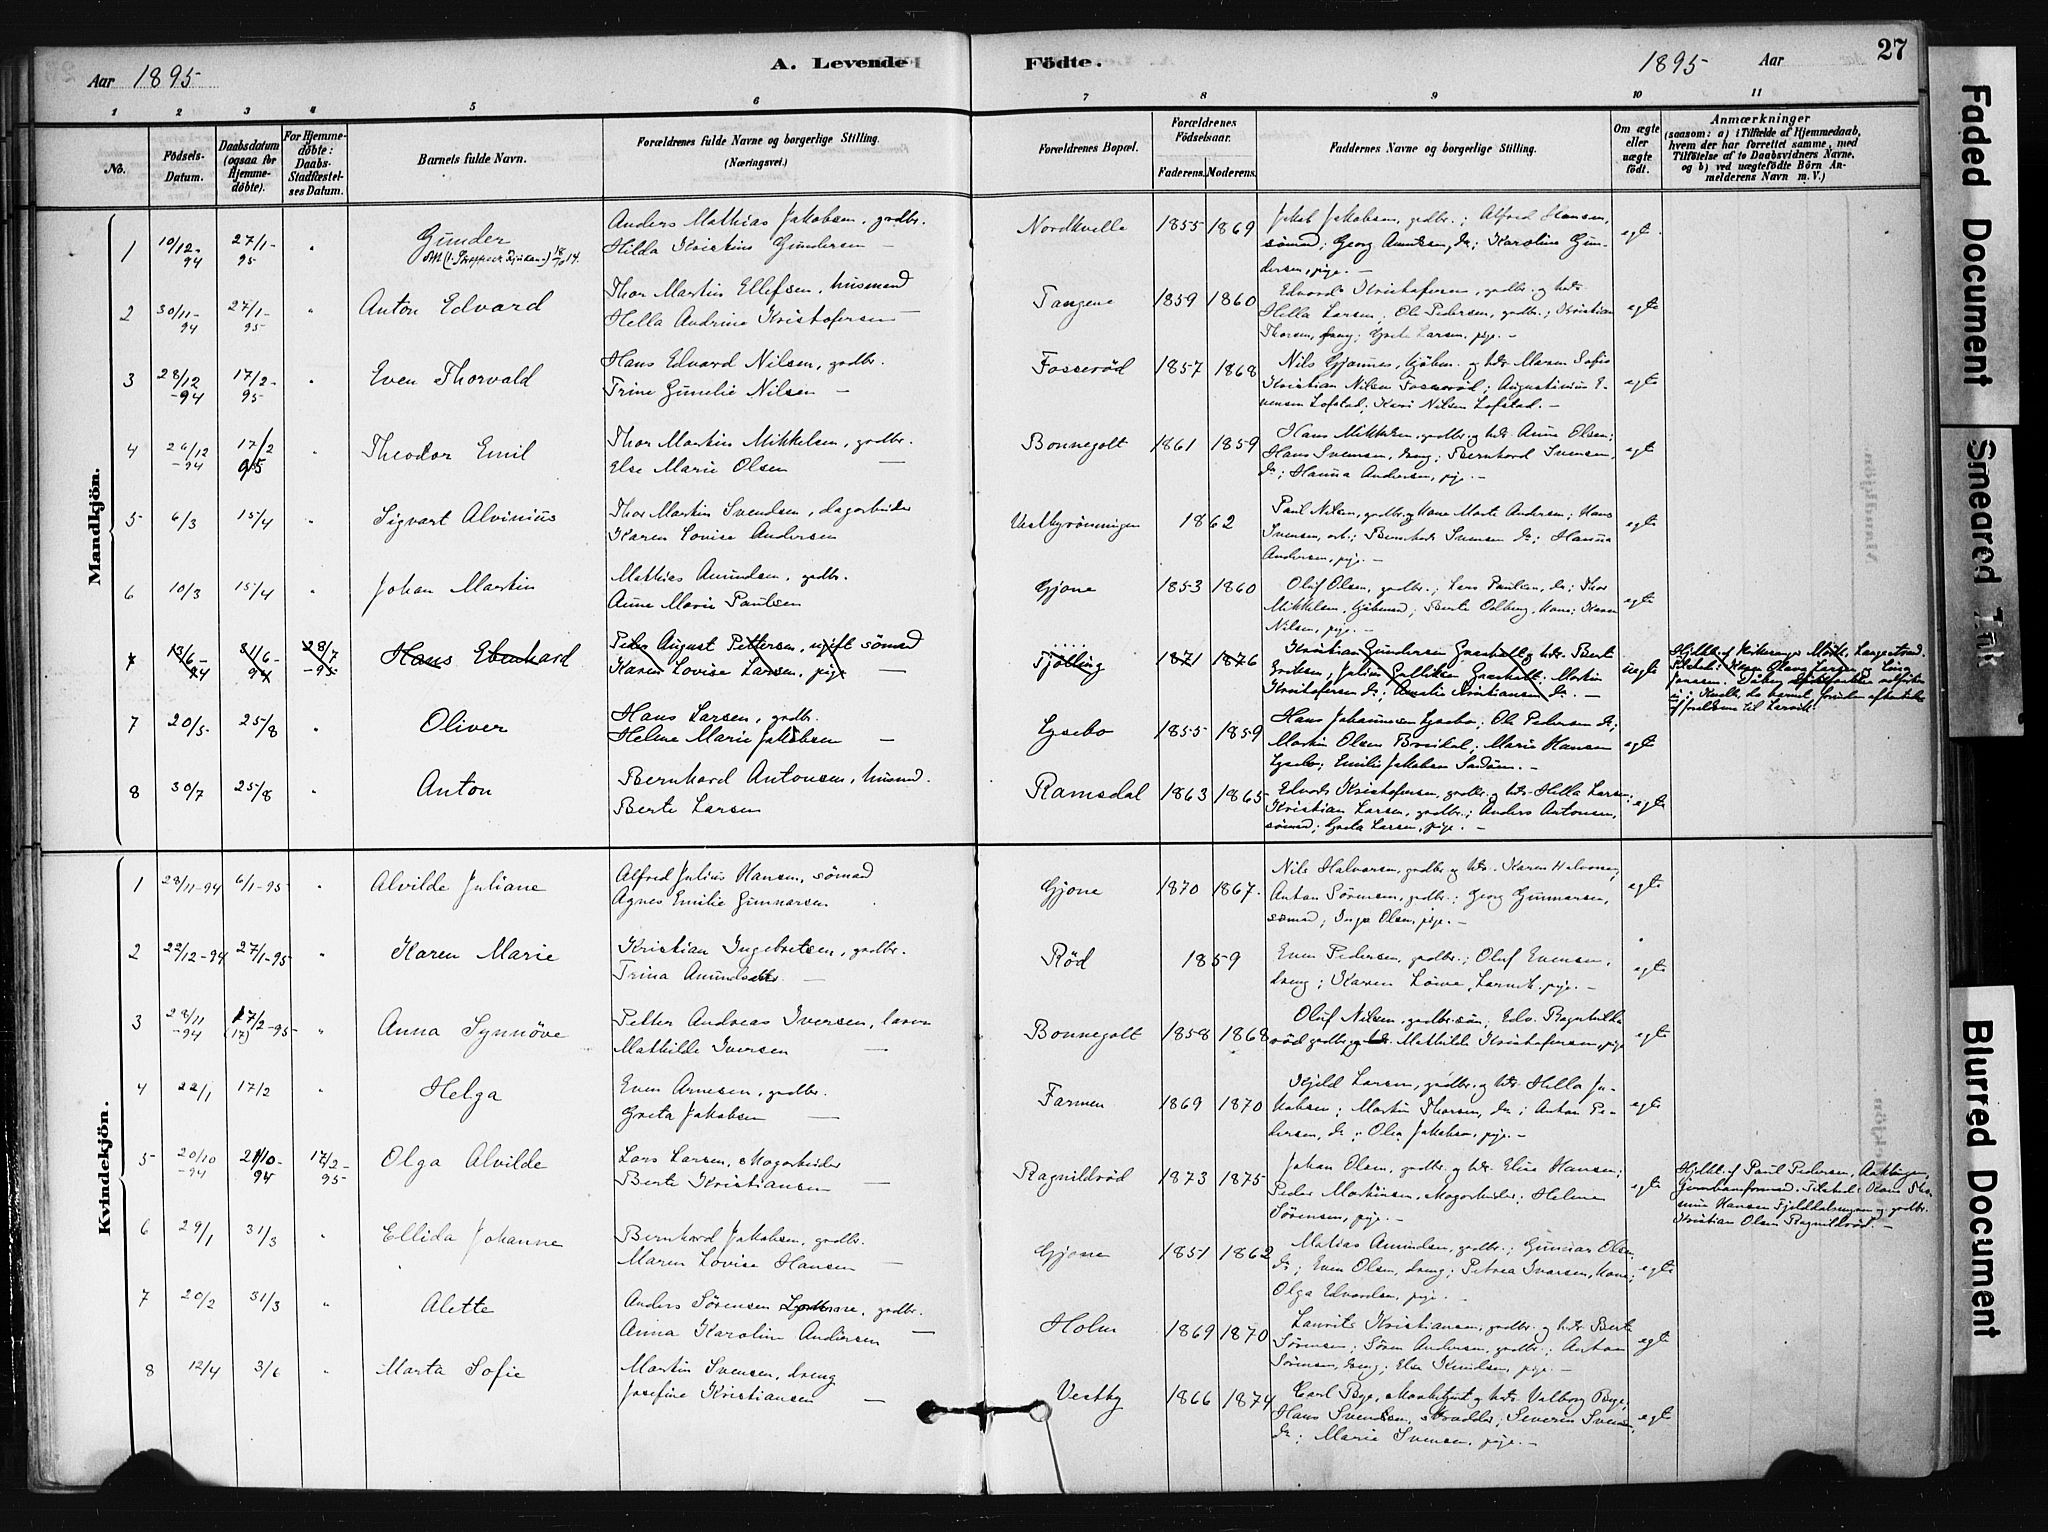 Aar 1895
A. Levende
Födte.
1895 Aar
27
1 2 3 4 5 6 7 8 9 10 11
No.
Födsels-Datum.
Daabsdatum (ogsaa for Hjemme-döbte).
For Hjemme-döbte: Daabs-Stadfæstel-ses Datum.
Barnets fulde Navn.
Forældrenes fulde Navne og borgerlige Stilling. (Næringsvei.)
Forældrenes Bopæl.
Forældrenes Födselsaar.
Faderens. Moderens.
Faddernes Navne og borgerlige Stilling.
Om ægte eller uægte födt.
Anmærkninger
(saasom: a) i Tilfælde af Hjemmedaab, hvem der har forrettet samme, med Tilföielse af to Daabsvidners Navne, og b) ved uægtefödte Börn An-melderens Navn m. V.)
Mandkjön.
1 10/12-94 27/1-95 " Gunder
Anders Mathias Jakobsen, grdbr.
Hilda Kristine Gundersen —
Nordkvelle 1855 1869
Jakob Jakobsen, grdbr.; Alfred Hansen,
sömand; Georg Amundsen, do; Karoline Gun-
dersen, pige. —
egt
2 30/11-94 27/1-95 " Anton Edvard
Thor Martin Ellefsen, husmand
Hella Andrine Kristofersen —
Tangene 1859 1860
Edvard Kristofersen, grdbr. og hst
Hella Larsen; Ole Pedersen, grdbr.; Kristian
Thorsen, dreng; Grete Larsen, pige. —
egte
3 28/12-94 17/2-95 " Even Thorvald
Hans Edvard Nilsen, grdbr.
Trine Gunelie Nilsen —
Fosserød 1857 1868
Nils Gjønnes, Kjöbm. og hst. Maren Sofie
Kristian Nilsen Fosserød; Augustinius E-
vensen Lofstad; Kari Nilsen Lofstad. —
egte
4 26/12-94 17/2 95 " Theodor Emil
Thor Martin Mikkelsen, grdbr.
Else Marie Olsen —
Bonnegolt 1861 1859
Hans Mikkelsen, grdbr. og hst Anne Olsen;
Hans Svensen, dreng; Bernhard Svensen,
do; Hanna Andersen, pige. —
egt
5 6/3 15/4 " Sigvart Alvinius
Thor Martin Svendsen, dagarbeider
Karen Lovise Andersen
Vestbyrønningen 1862
Paul Nilsen, grdbr. og Kone Marte Andersen; Hans
Svensen, arb.; Bernhard Svensen do; Hanna
Andersen, pige. —
egte
6 10/3 15/4 " Johan Martin
Mathias Amundsen, grdbr.
Anne Marie Paulsen
Gjone 1853 1860
Oluf Olsen, grdbr.; Lars Paulsen, do; Thor
Mikkelsen, Kjöbmand; Berte Odberg, Kone; Karen
Nilsen, pige. —
egte
7 13/6-94 31/6-94 28/7-95 Hans Ebenhard
Peter August Pettersen, ugift sömand
Karen Lovise Larsen, pige —
Tjölling 1871 1876
Kristian Gundersen
Kristofersen do; Amalie Kristiansen do. —
uegte
7 20/5 25/8 " Oliver
Hans Larsen, grdbr.
Helene Marie Jakobsen —
Lysebo 1855 1859
Hans Johannesen Lysebo; Ole Pedersen do;
Martin Olsen Breidal; Marie Hansen
Lysebo; Emilie Jakobsen Sandöen. —
egt
8 30/7 25/8 " Anton
Bernhard Antonsen, husmd.
Berte Larsen
Ramsdal 1863 1865
Edvard Kristofersen, grdbr. og hst. Hella Larsen;
Kristian Larsen, grdbr.; Anders Antonsen,
sömand; Greta Larsen, pige. —
egte
Kvindekjön.
1 28/11-94 6/1-95 " Alvilde Juliane
Alfred Julius Hansen, sömand
Agnes Emilie Gunnarsen
Gjone 1870 1867.
Nils Halvorsen, grdbr. og hst. Karen Halvorsen;
Anton Sörensen, grdbr.; Georg Gunnarsen,
sömand; Inga Olsen, pige. —
egte
2 22/12-94 27/1-95 " Karen Marie
Kristian Ingebretsen, grdbr.
Trina Amundsen —
Rød 1859
Even Pedersen, grdbr.; Oluf Evensen,
dreng; Karen Löwe, Larvik, pige. —
egte
3 28/11-94 17/2-95 (17) " Anna Synnöve
Petter Andreas Iversen,
Mathilde Iversen —
Bonnegolt 1858 1868
Oluf Nilsen, grdbr.sön; Edv. Ragnhilds-
röd grdbr. og hst. Mathilde Kristofersen, pige
egt
4 22/1 17/2 " Helga
Even Arnesen, grdbr.
Greta Jakobsen —
Farmen 1869 1870
Kjeld Larsen, grdbr. og hst. Hella Ja-
kobsen; Martin Thorsen, do; Anton Pe-
dersen, do; Olea Jakobsen, pige. —
egte
5 20/10-94 21/10-94 17/2-95 Olga Alvilde
Lars Larsen, skogarbeider
Berte Kristiansen —
Ragnildröd 1873 1875
Johan Olsen, grdbr. og hst. Elise Hansen;
Peder Martinsen, skogarbeider; Helene
Sörensen, pige. —
egte
Hjdbt. af Paul Pedersen, Aaklungen,
Jernbaneformand. Tilstede: Kone Tho-
rine Hansen Fjelddalsengen og grdbr.
Kristian Olsen Ragnildröd. —
6 29/1 31/3 " Ellida Johanne
Bernhard Jakobsen, grdbr.
Maren Lovise Hansen —
Gjone 1851 1862
Matias Amundsen, grdbr.; Gunnar Olsen,
do; Even Olsen, dreng; Petrea Ivarsen, Kone;
Olga Edvardsen, pige. —
egte
7 20/2 31/3 " Alette
Anders Sörensen, grdbr.
Anna Karoline Andersen —
Holm 1869 1870
Laurits Kristiansen, grdbr. og hst. Berte
Sörensen; Sören Andersen, grdbr.; Anton
Sörensen, dreng; Else Knudsen, pige. —
egt
8 12/4 3/6 " Marta Sofie
Martin Svensen, dreng
Josefine Kristiansen —
Vestby 1866 1874
Carl Bye, og hst. Valborg Bye;
Hans Svendsen, skrædder; Severin Svensen,
do; Marie Svensen, pige. —
egt
Faded Document
Smeared Ink
Blurred Document